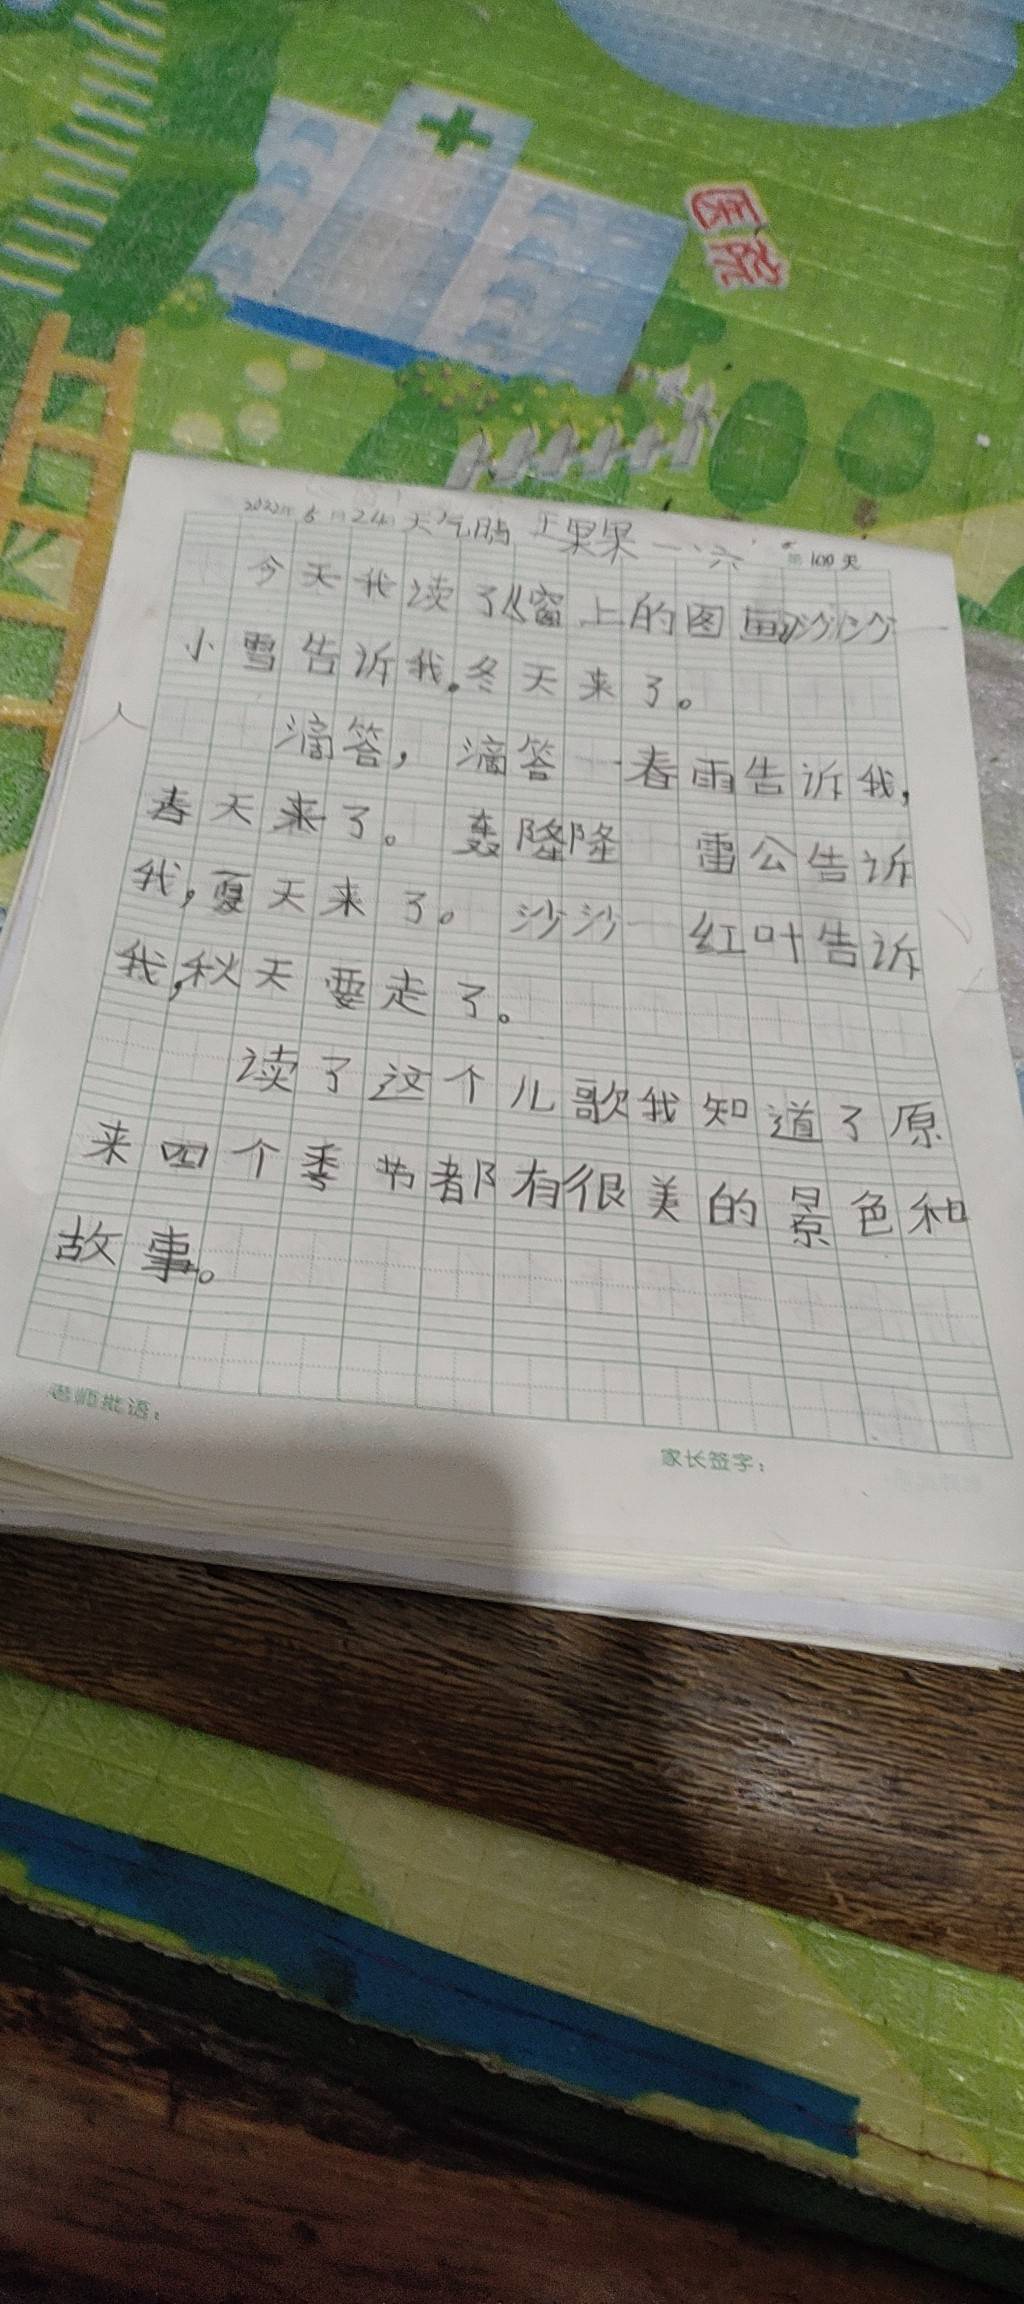 医院
2022年5月24日 天气晴 王果果 一、六 第100天
今天我读了《窗上的图画》沙沙—
小雪告诉我。冬天来了。
滴答，滴答一春雨告诉我，
春天来了。轰隆隆 雷公告诉
我，夏天来了。沙沙一红叶告诉
我，秋天要走了。
读了这个儿歌我知道了原
来四个季节都有很美的景色和
故事。
老师批语：
家长签字：